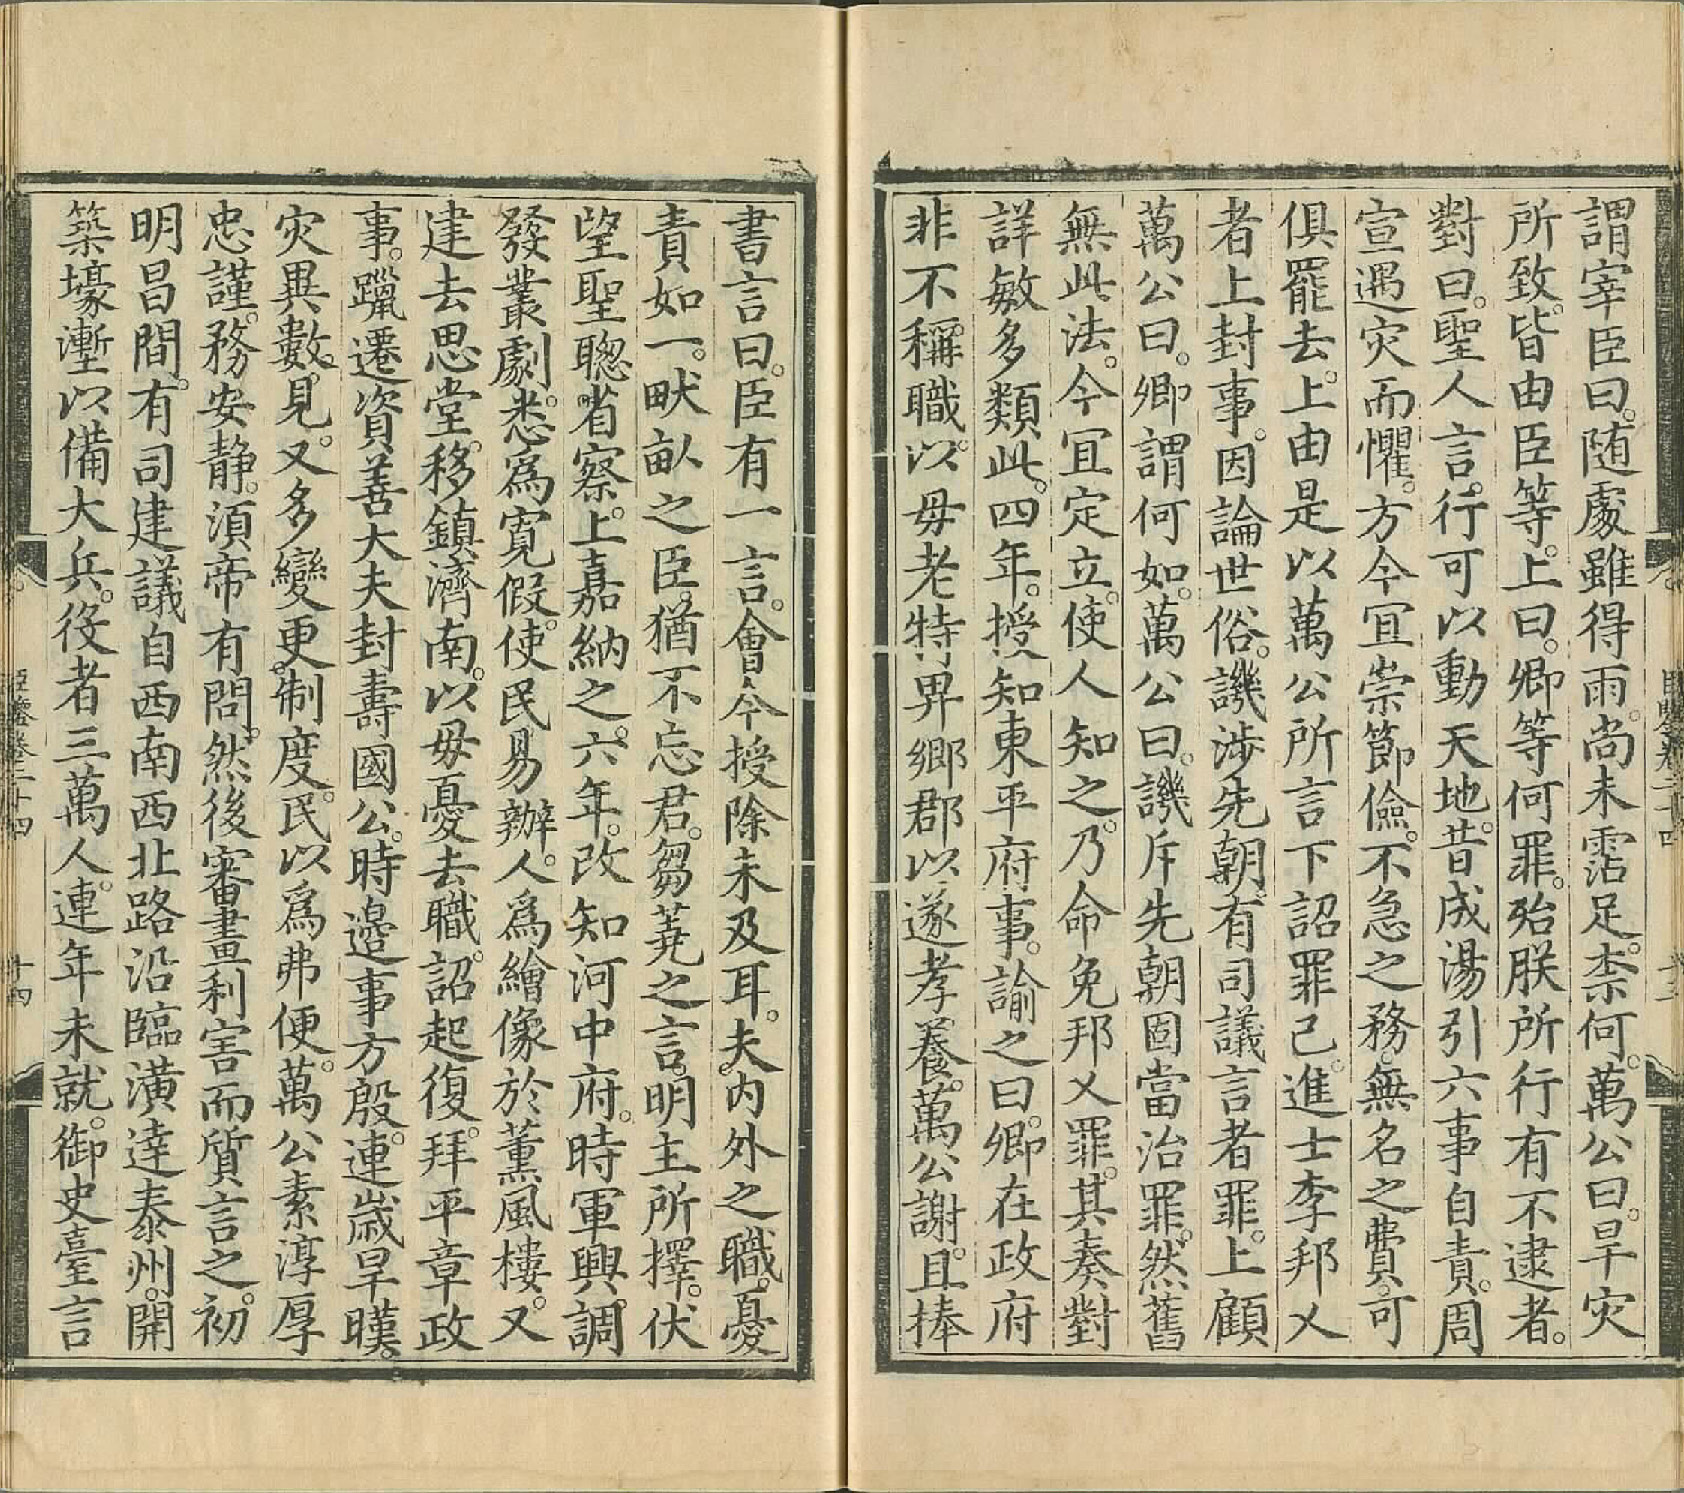 謂宰臣曰。随處雖得雨。尚未霑足。柰何。萬公曰。旱灾
所致。皆由臣等。上曰。卿等何罪。殆朕所行有不逮者。
對曰。聖人言。行可以動天地。昔成湯引六事自責。周
宣遇灾而懼。方今宜崇節儉。不急之務。無名之費。可
俱罷去。上由是以萬公所言下詔罪己。進士李邦乂
者上封事。因論世俗。譏涉先朝。有司議言者罪。上顧
萬公曰。卿謂何如。萬公曰。譏斥先朝固當治罪。然舊
無此法。今宜定立。使人知之。乃命免邦乂罪。其奏對
詳敏多類此。四年。授知東平府事。諭之曰。卿在政府
非不稱職。以毋老特畀鄉郡以遂孝養。萬公謝。且捧
書言曰。臣有一言。會今授除未及耳。夫内外之職。憂
責如一。畎畝之臣。猶不忘君。芻蕘之言。明主所擇。伏
望聖聰省察。上嘉納之。六年。改知河中府。時軍興。調
發叢劇。悉爲寛假。使民易辦。人爲繪像於薰風樓。又
建去思堂。移鎮濟南。以毋憂去職。詔起復。拜平章政
事。躐遷資善大夫封壽國公。時邉事方殷。連歲旱暵。
灾異數。見。又多變更。制度。民以爲弗便。萬公素淳厚
忠謹。務安静。湏帝有問。然後審畫利害而質言之。初
明昌間。有司建議自西南西北路沿臨潢逹泰州。開
築壕塹以備大兵。役者三萬人。連年未就。御史臺言
卷二十四
十四